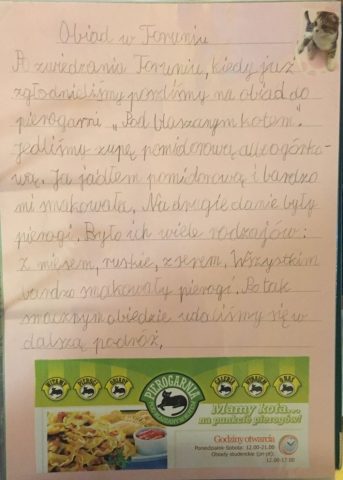 Obiad w Toruniu
Po zwiedzaniu Torunia, kiedy już
zgłodnieliśmy poszliśmy na obiad do
pierogarni „Pod blaszanym kotem".
Jedliśmy zupę pomidorową albo ogórko-
wą. Ja jadłem pomidorową i bardzo
mi smakowała. Na drugie danie były
pierogi. Było ich wiele rodzajów:
z mięsem, ruskie, z serem. Wszystkim
bardzo smakowały pierogi. Po tak
smacznym obiedzie udaliśmy się w
dalszą podróż.
WITAMY PIEROGI OBIADY PIEROGARNIA GALERIA O NAS
Mamy kota...
na punkcie pierogów!
Godziny otwarcia
Poniedziałek-Sobota: 12.00-21.00
Obiady studenckie (pn-pt):
12.00-17.00